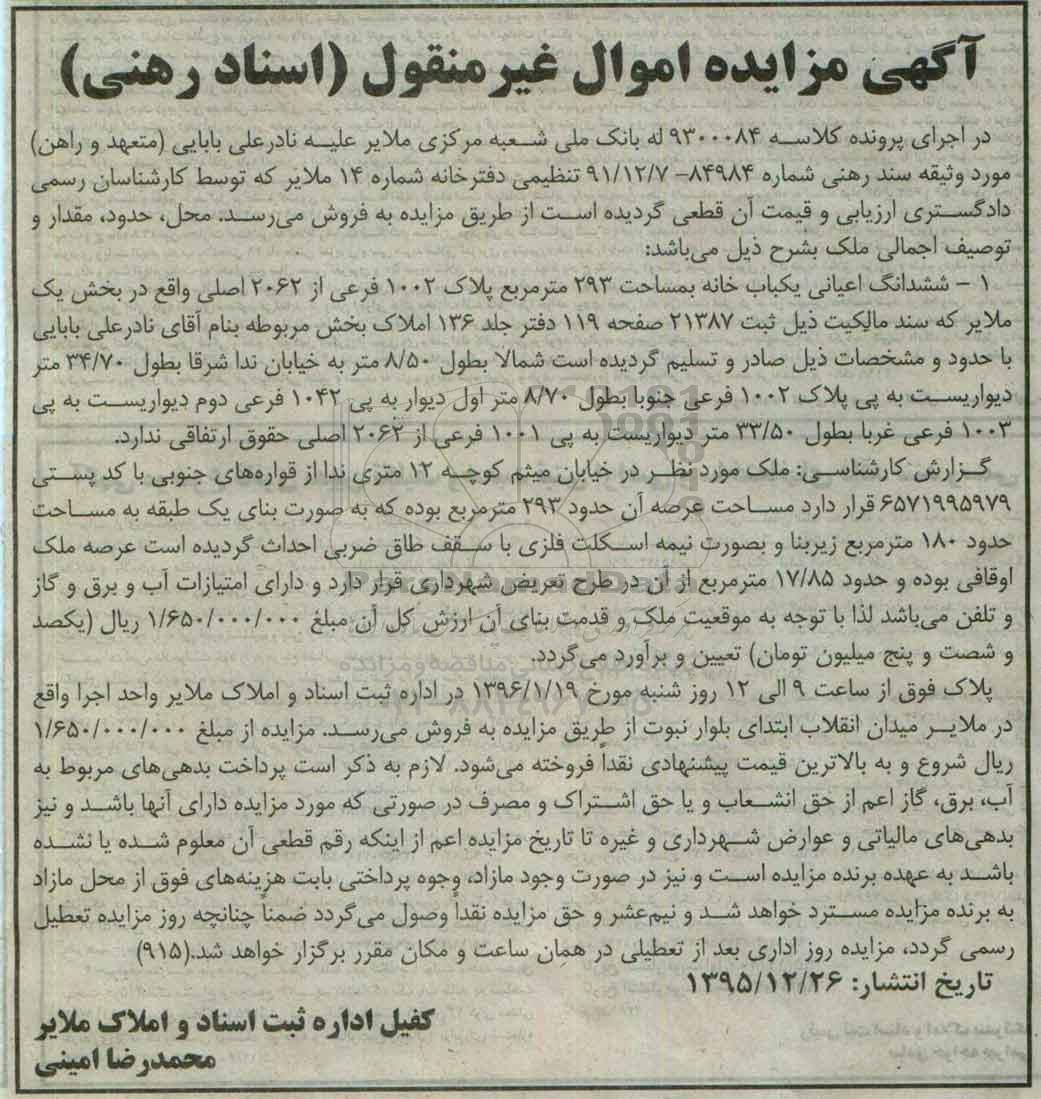 آگهی مزایده اموال غیرمنقول (اسناد رهنی)
در اجرای پرونده کلاسه ۹۳۰۰۰۸۴ له بانک ملی شعبه مرکزی ملایر علیه نادرعلی بابایی (متعهد و راهن)
مورد وثیقه سند رهنی شماره ۸۴۹۸۴- ۹۱/۱۲/۷ تنظیمی دفترخانه شماره ۱۴ ملایر که توسط کارشناسان رسمی
دادگستری ارزیابی و قیمت آن قطعی گردیده است از طریق مزایده به فروش می‌رسد. محل، حدود، مقدار و
توصیف اجمالی ملک بشرح ذیل می‌باشد:
۱ – ششدانگ اعیانی یکباب خانه بمساحت ۲۹۳ مترمربع پلاک ۱۰۰۲ فرعی از ۲۰۶۲ اصلی واقع در بخش یک
ملایر که سند مالکیت ذیل ثبت ۲۱۳۸۷ صفحه ۱۱۹ دفتر جلد ۱۳۶ املاک بخش مربوطه بنام آقای نادرعلی بابایی
با حدود و مشخصات ذیل صادر و تسلیم گردیده است شمالا بطول ۸/۵۰ متر به خیابان ندا شرقا بطول ۳۴/۷۰ متر
دیواریست به پی پلاک ۱۰۰۲ فرعی جنوبا بطول ۸/۷۰ متر اول دیوار به پی ۱۰۴۲ فرعی دوم دیواریست به پی
۱۰۰۳ فرعی غربا بطول ۳۳/۵۰ متر دیواریست به پی ۱۰۰۱ فرعی از ۲۰۶۲ اصلی حقوق ارتفاقی ندارد.
گزارش کارشناسی: ملک مورد نظر در خیابان میثم کوچه ۱۲ متری ندا از قواره‌های جنوبی با کد پستی
۶۵۷۱۹۹۵۹۷۹ قرار دارد مساحت عرصه آن حدود ۲۹۳ مترمربع بوده که به صورت بنای یک طبقه به مساحت
حدود ۱۸۰ مترمربع زیربنا و بصورت نیمه اسکلت فلزی با سقف طاق ضربی احداث گردیده است عرصه ملک
اوقافی بوده و حدود ۱۷/۸۵ مترمربع از آن در طرح تعریض شهرداری قرار دارد و دارای امتیازات آب و برق و گاز
و تلفن می‌باشد لذا با توجه به موقعیت ملک و قدمت بنای آن ارزش کل آن مبلغ ۱/۶۵۰/۰۰۰/۰۰۰ ریال (یکصد
و شصت و پنج میلیون تومان) تعیین و برآورد می‌گردد.
پلاک فوق از ساعت ۹ الی ۱۲ روز شنبه مورخ ۱۳۹۶/۱/۱۹ در اداره ثبت اسناد و املاک ملایر واحد اجرا واقع
در ملایر میدان انقلاب ابتدای بلوار نبوت از طریق مزایده به فروش می‌رسد. مزایده از مبلغ ۱/۶۵۰/۰۰۰/۰۰۰
ریال شروع و به بالاترین قیمت پیشنهادی نقداً فروخته می‌شود. لازم به ذکر است پرداخت بدهی‌های مربوط به
آب، برق، گاز اعم از حق انشعاب و یا حق اشتراک و مصرف در صورتی که مورد مزایده دارای آنها باشد و نیز
بدهی‌های مالیاتی و عوارض شهرداری و غیره تا تاریخ مزایده اعم از اینکه رقم قطعی آن معلوم شده یا نشده
باشد به عهده برنده مزایده است و نیز در صورت وجود مازاد، وجوه پرداختی بابت هزینه‌های فوق از محل مازاد
به برنده مزایده مسترد خواهد شد و نیم‌عشر و حق مزایده نقداً وصول می‌گردد ضمناً چنانچه روز مزایده تعطیل
رسمی گردد، مزایده روز اداری بعد از تعطیلی در همان ساعت و مکان مقرر برگزار خواهد شد.(۹۱۵)
تاریخ انتشار: ۱۳۹۵/۱۲/۲۶
کفیل اداره ثبت اسناد و املاک ملایر
محمدرضا امینی